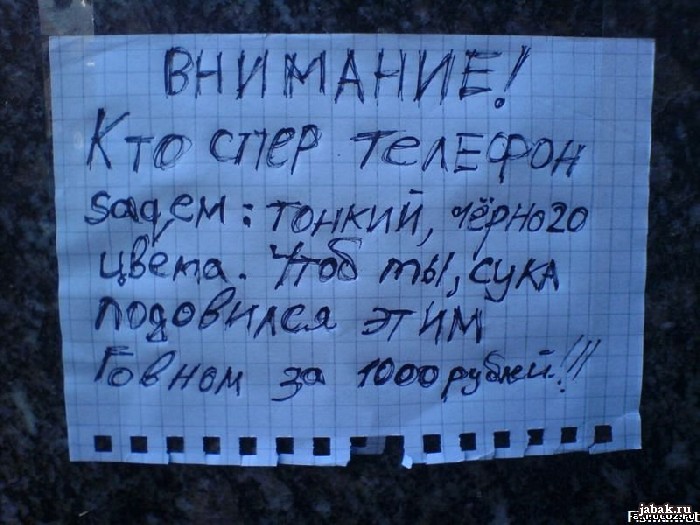 ВНИМАНИЕ!
Кто спер телефон
sagем: тонкий, чёрного
цвета. Чтоб ты, сука
подовился этим
Говном за 1000 рублей!!!
jabak.ru